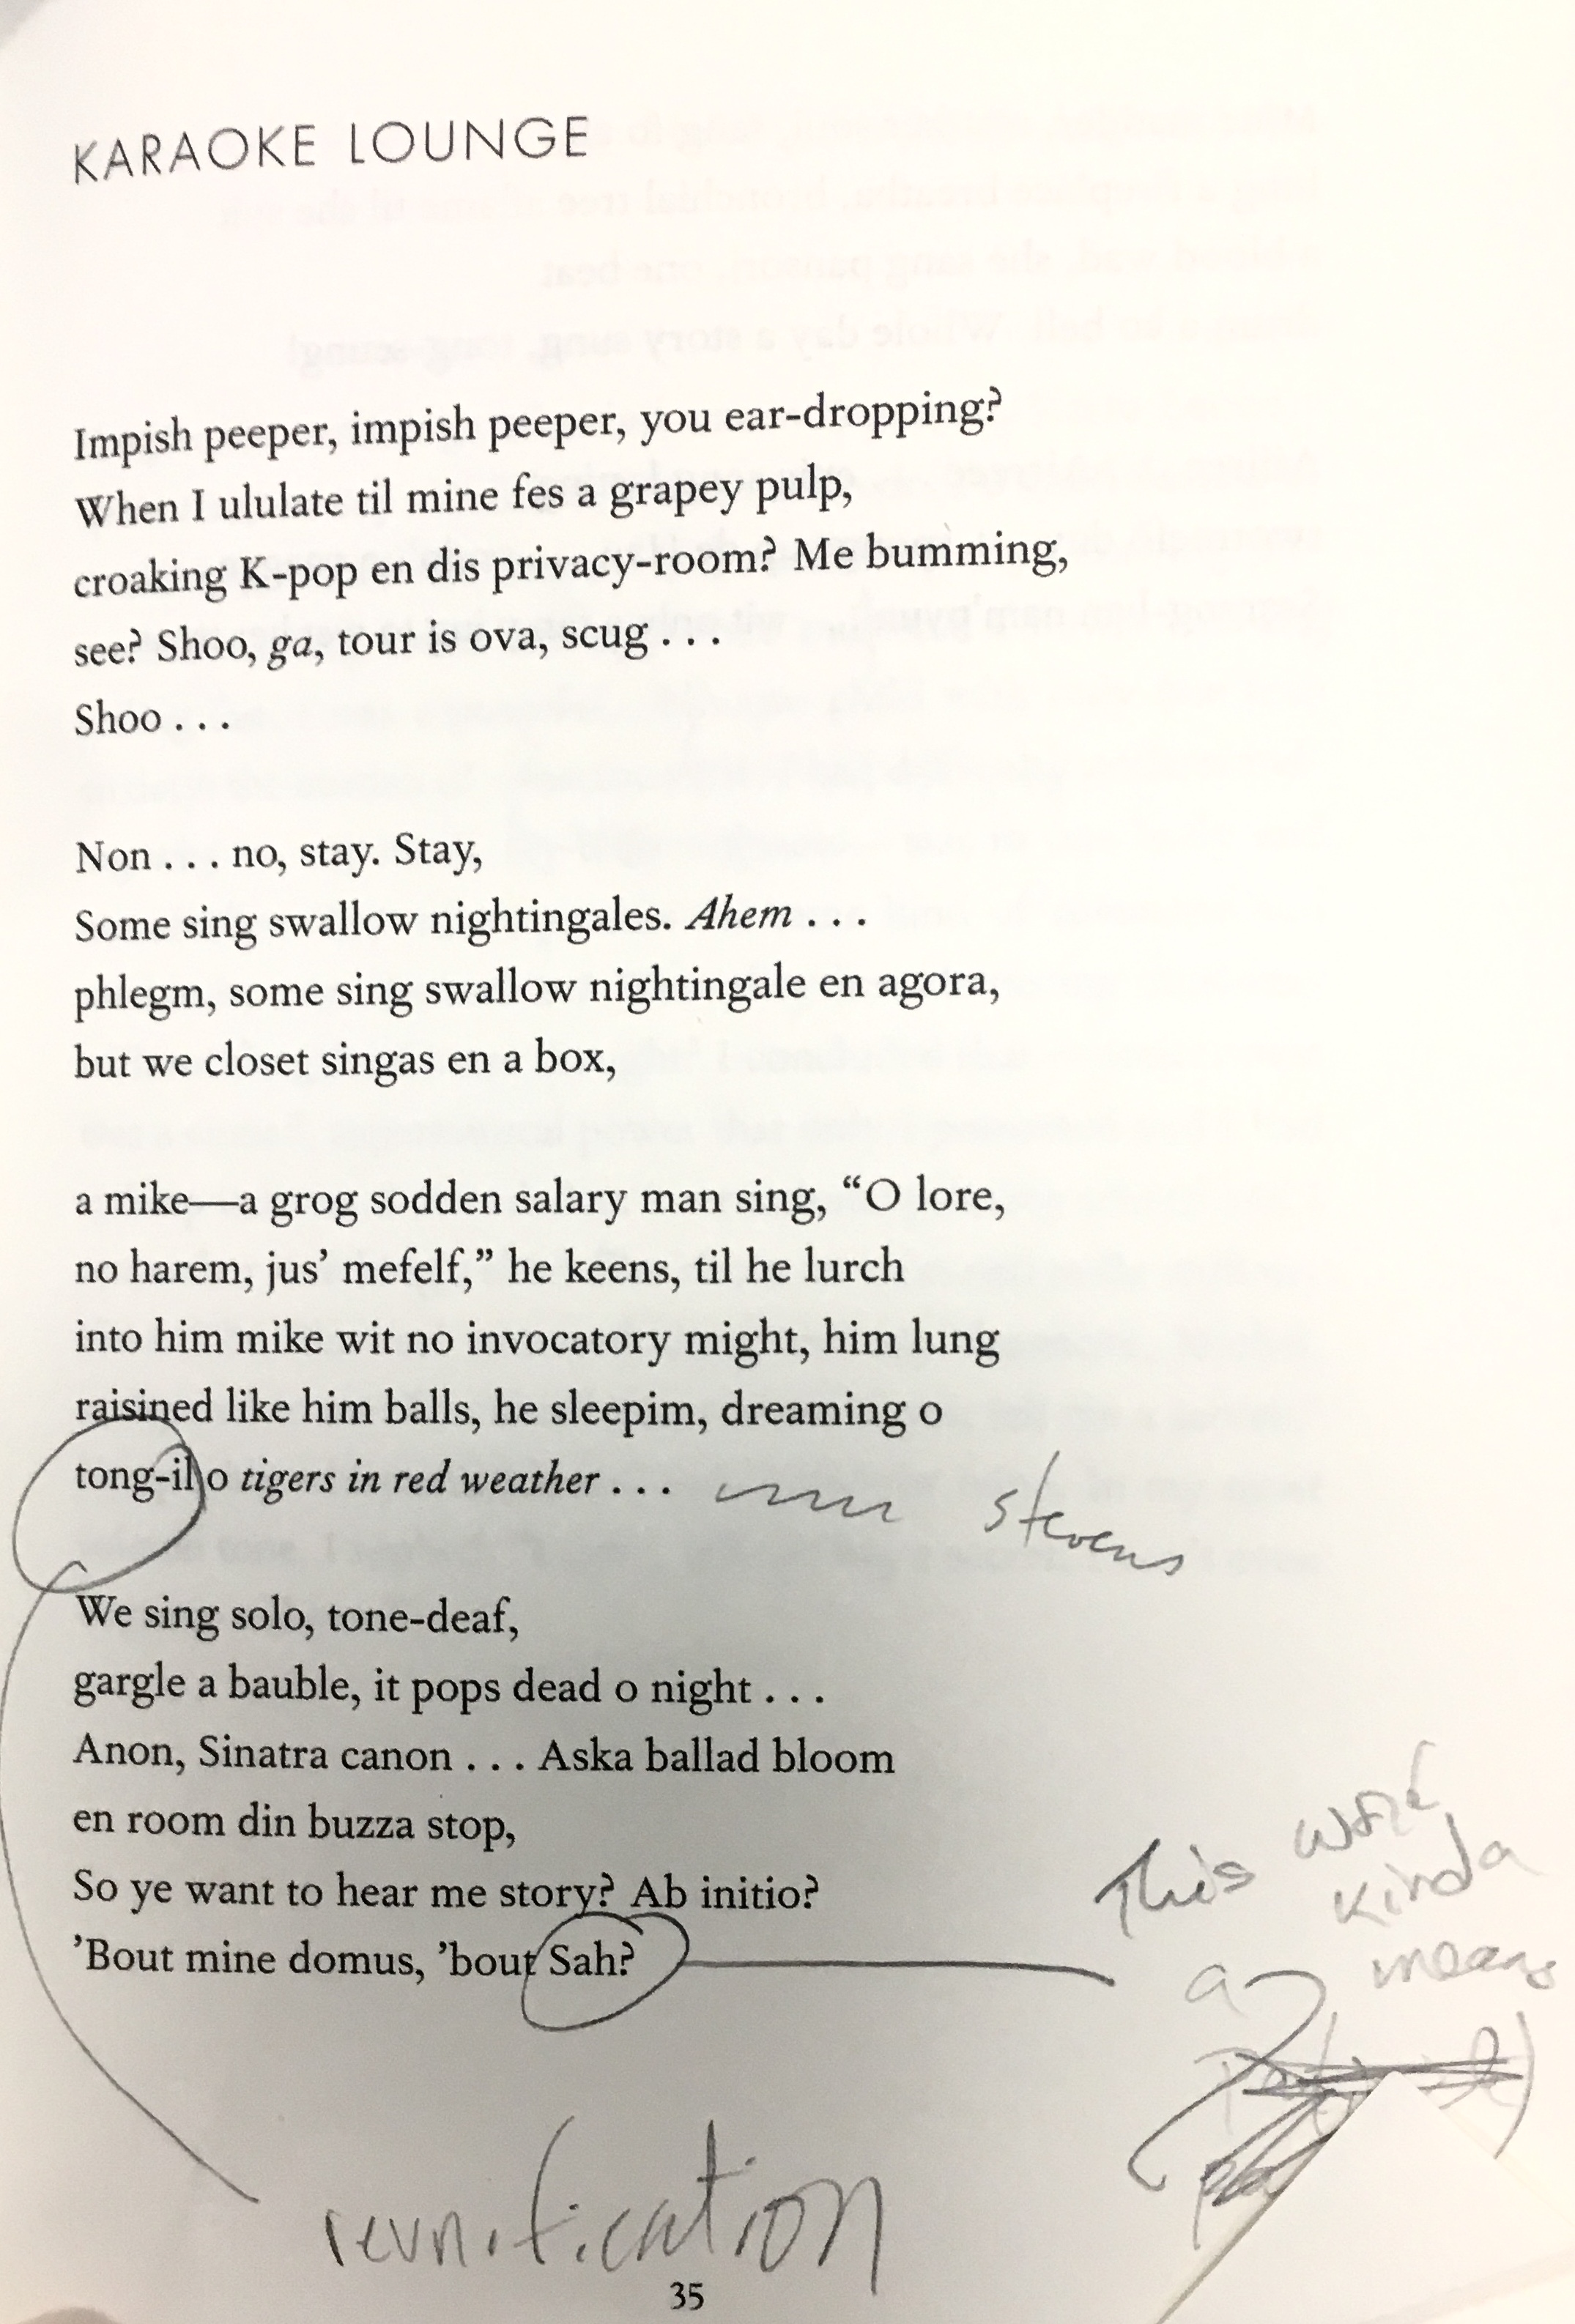 KARAOKE LOUNGE
Impish peeper, impish peeper, you ear-dropping?
When I ululate til mine fes a grapey pulp,
croaking K-pop en dis privacy-room? Me bumming,
see? Shoo, ga, tour is ova, scug . . .
Shoo . . .
Non . . . no, stay. Stay,
Some sing swallow nightingales. Ahem . . .
phlegm, some sing swallow nightingale en agora,
but we closet singas en a box,
a mike—a grog sodden salary man sing, “O lore,
no harem, jus’ mefelf,” he keens, til he lurch
into him mike wit no invocatory might, him lung
raisined like him balls, he sleepim, dreaming o
tong-il o tigers in red weather . . .
stevens
We sing solo, tone-deaf,
gargle a bauble, it pops dead o night . . .
Anon, Sinatra canon . . . Aska ballad bloom
en room din buzza stop,
So ye want to hear me story? Ab initio?
’Bout mine domus, ’bout Sah?
This word
kinda
means
a
reunification
35